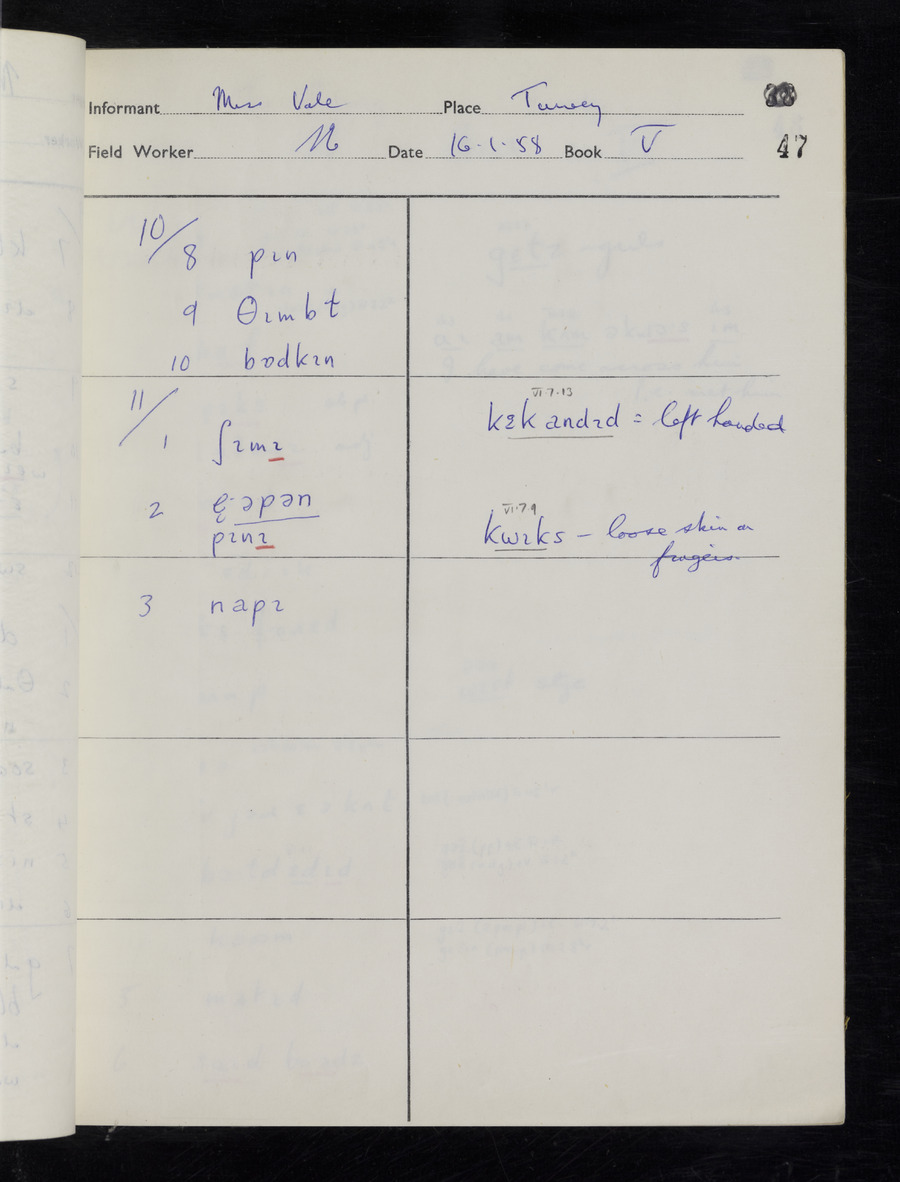 Informant Miss Vale Place Turvey
Field Worker Date 16.1.58 Book V 47
10/
8 pɪn
9 θɪmbt
10 bɒdkɪn
11/
1 ʃɪmɪ
2 əpən
pɪnɪ
3 napɪ
VI.7.13
kɛk andɪd = left handed
VI.7.9
kwɪks – loose skin on
fingers.